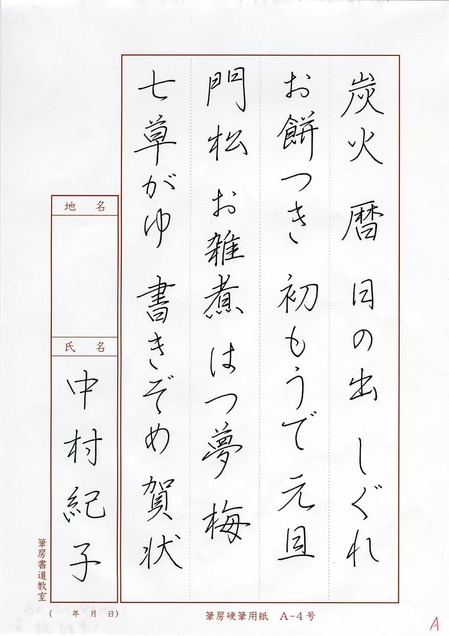 炭火 暦 日の出 しぐれ
お餅つき 初もうで 元旦
門松 お雑煮 はつ夢 梅
七草がゆ 書きぞめ 賀状
地名
氏名
中村紀子
(年月日)
筆房書道教室
筆房硬筆用紙 A-4号
A